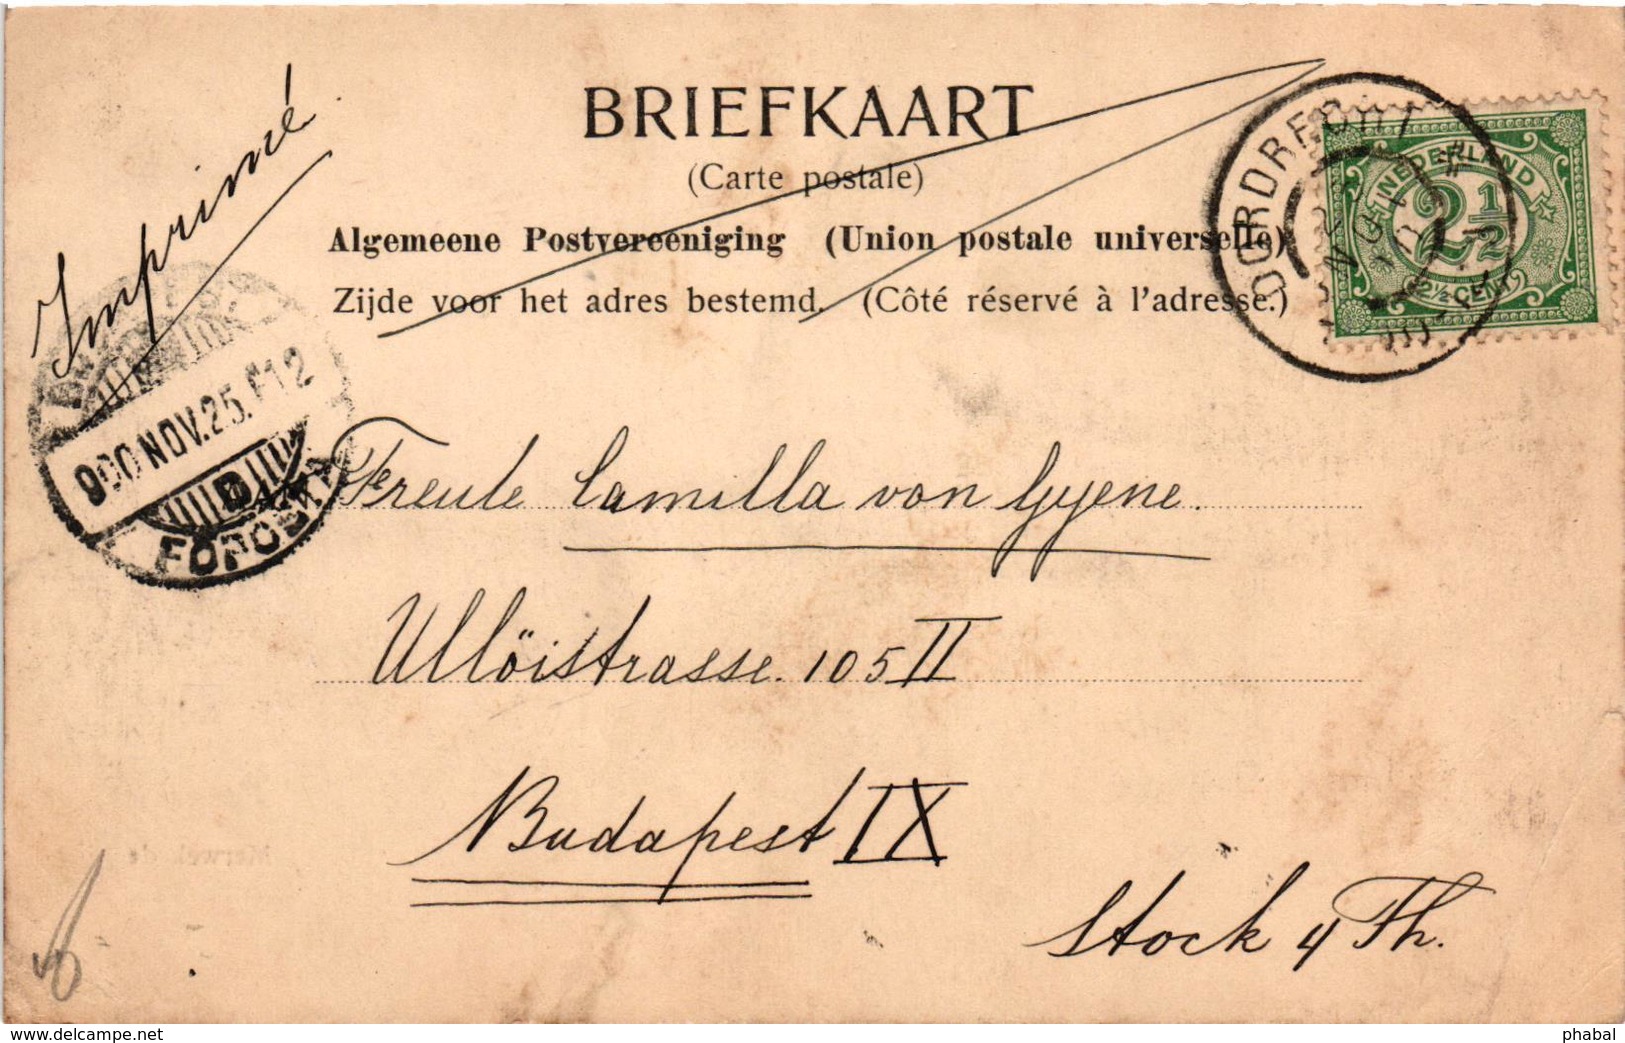 BRIEFKAART
(Carte postale)
Algemeene Postvereeniging (Union postale universelle)
Zijde voor het adres bestemd. (Côté réservé à l'adresse.)
Imprimé
DORDRECHT
NEDERLAND
2 1/2
2½ CENT
900 NOV. 25.
12
Freule Camilla von Gyene.
Ullöistrasse. 105 II
Budapest IX
Stock 4 Th.
Merwek de
www.delcampe.net
phabal